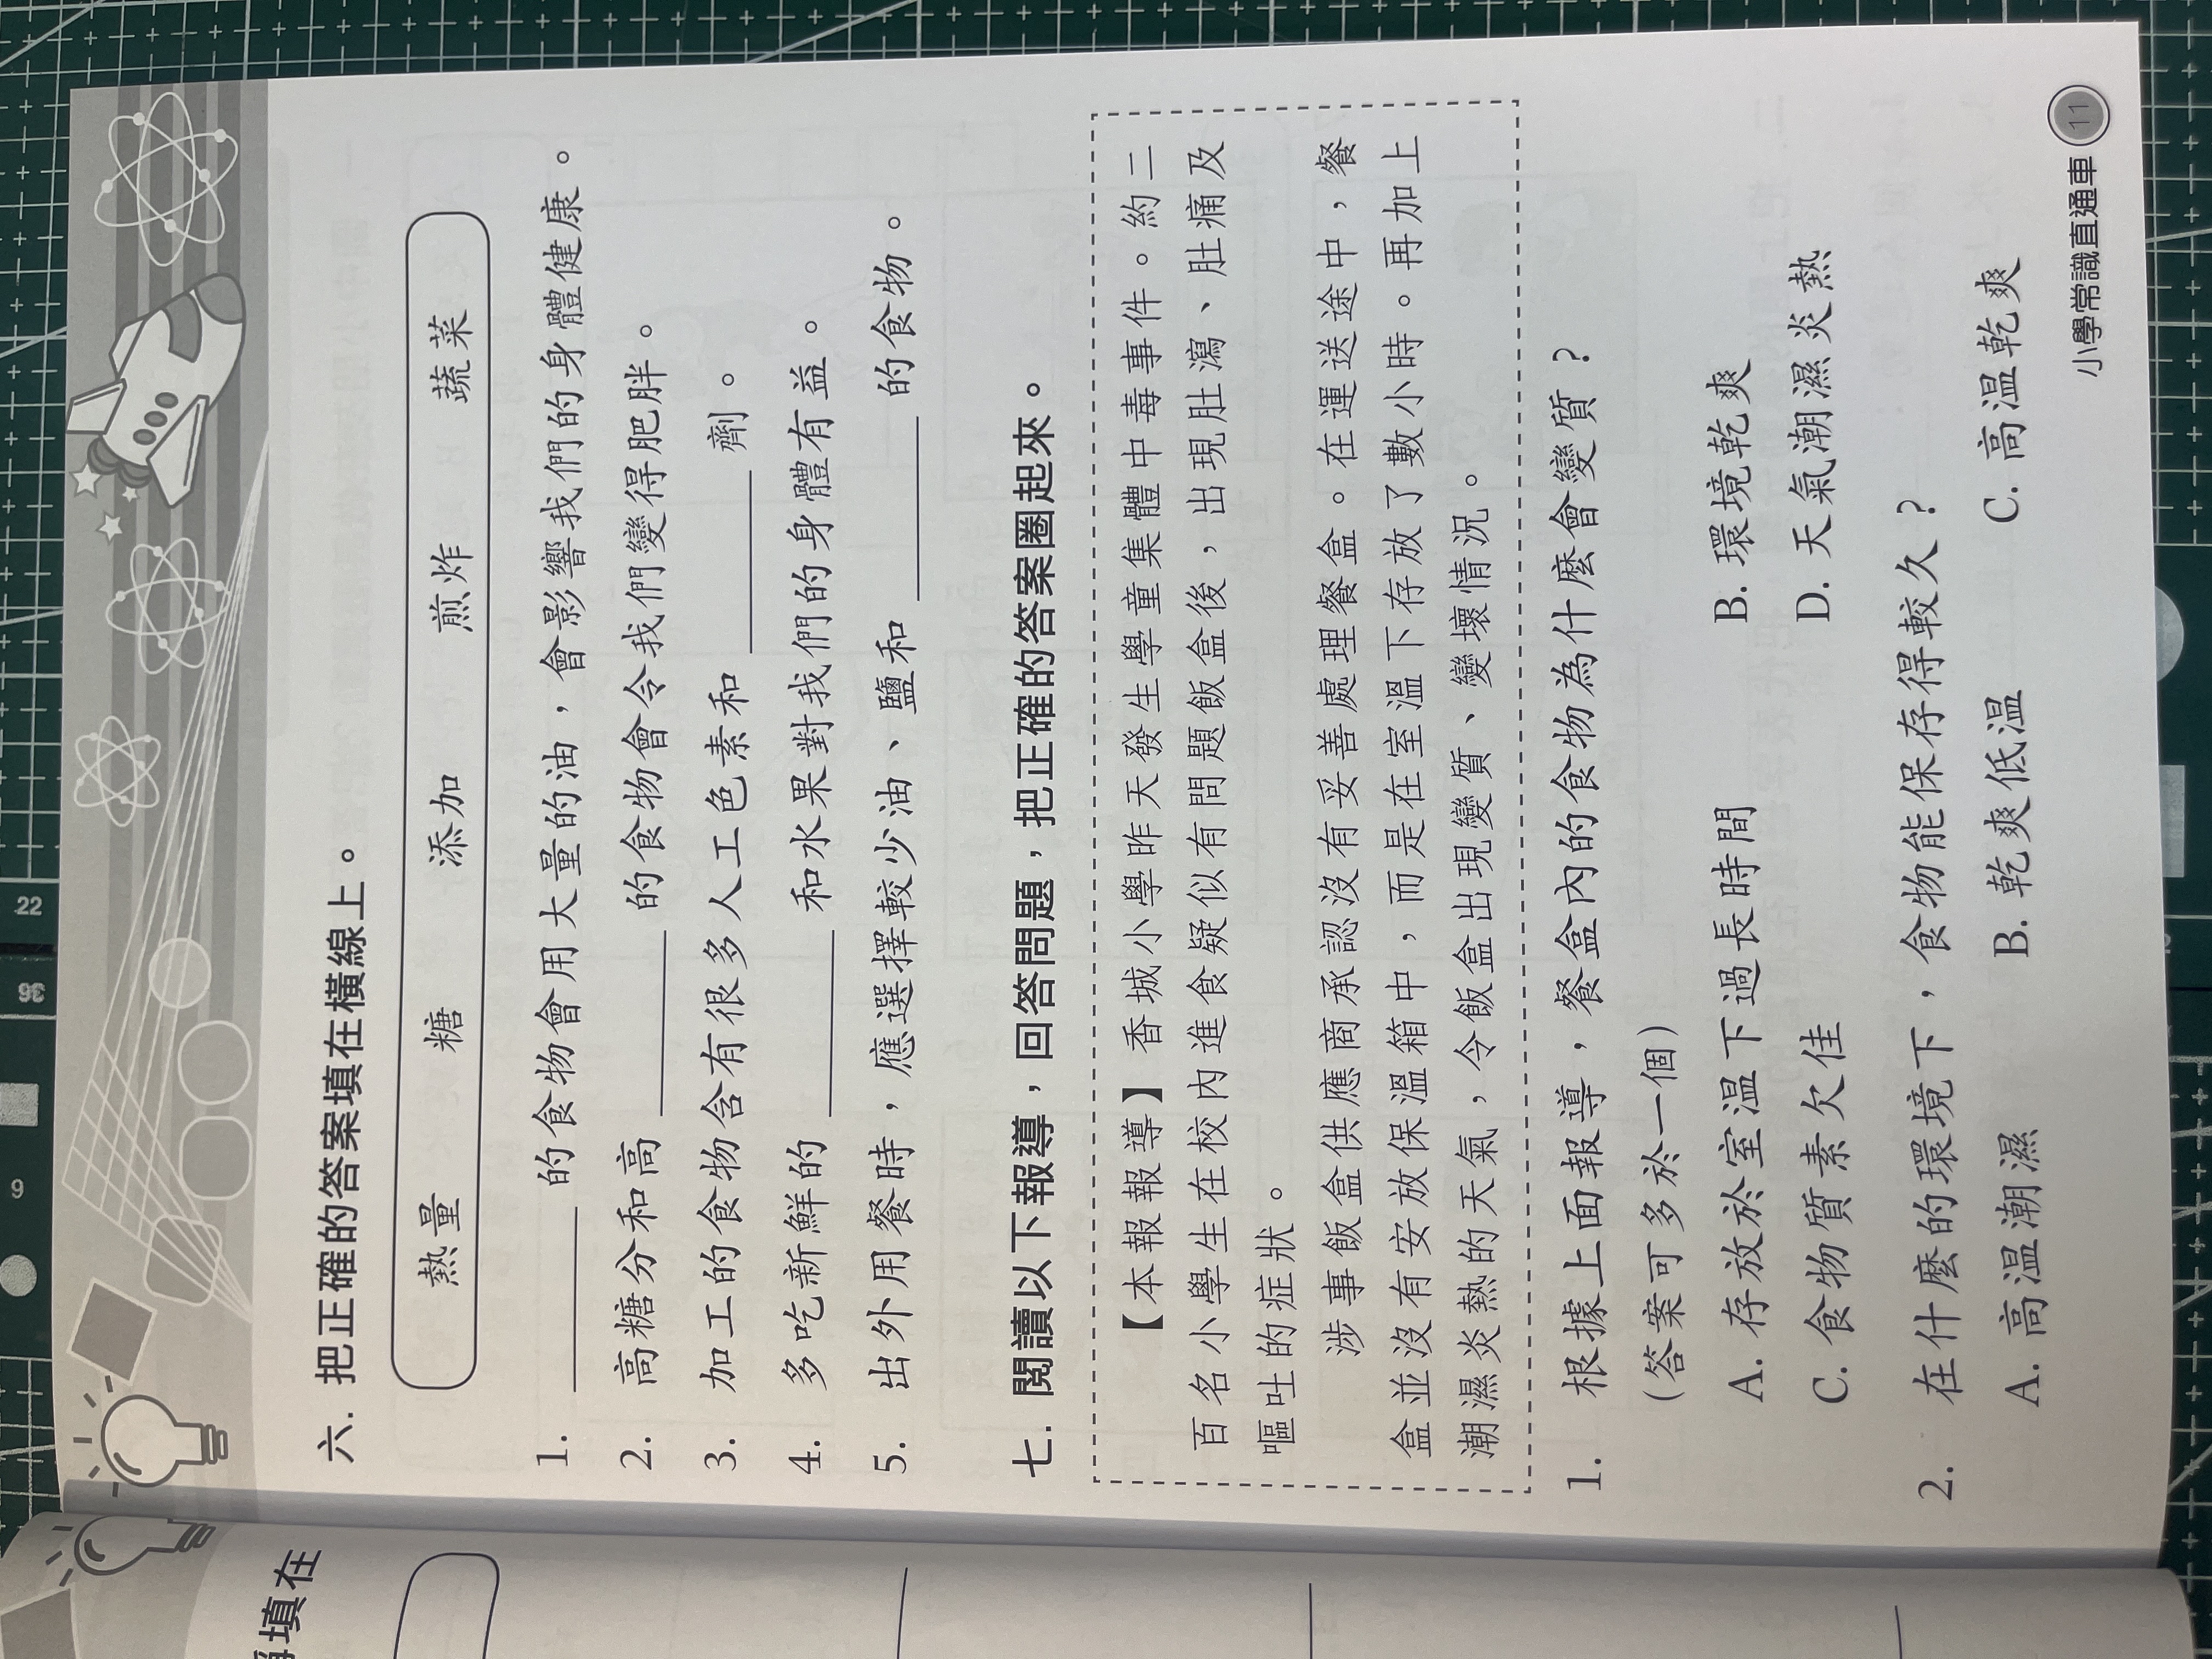 六. 把正確的答案填在橫線上。
熱量 糖 添加 煎炸 蔬菜
1. ________ 的食物會用大量的油，會影響我們的身體健康。
2. 高糖分和高 ________ 的食物會令我們變得肥胖。
3. 加工的食物含有很多人工色素和 ________ 劑。
4. 多吃新鮮的 ________ 和水果對我們的身體有益。
5. 出外用餐時，應選擇較少油、鹽和 ________ 的食物。
七. 閱讀以下報導，回答問題，把正確的答案圈起來。
【本報報導】香城小學昨天發生學童集體中毒事件。約二
百名小學生在校內進食疑似有問題飯盒後，出現肚瀉、肚痛及
嘔吐的症狀。
涉事飯盒供應商承認沒有妥善處理餐盒。在運送途中，餐
盒並沒有安放保溫箱中，而是在室溫下存放了數小時。再加上
潮濕炎熱的天氣，令飯盒出現變質、變壞情況。
1. 根據上面報導，餐盒內的食物為什麼會變質？
（答案可多於一個）
A. 存放於室温下過長時間 B. 環境乾爽
C. 食物質素欠佳 D. 天氣潮濕炎熱
2. 在什麼的環境下，食物能保存得較久？
A. 高温潮濕 B. 乾爽低温 C. 高温乾爽
小學常識直通車 11
填在
22
36
9